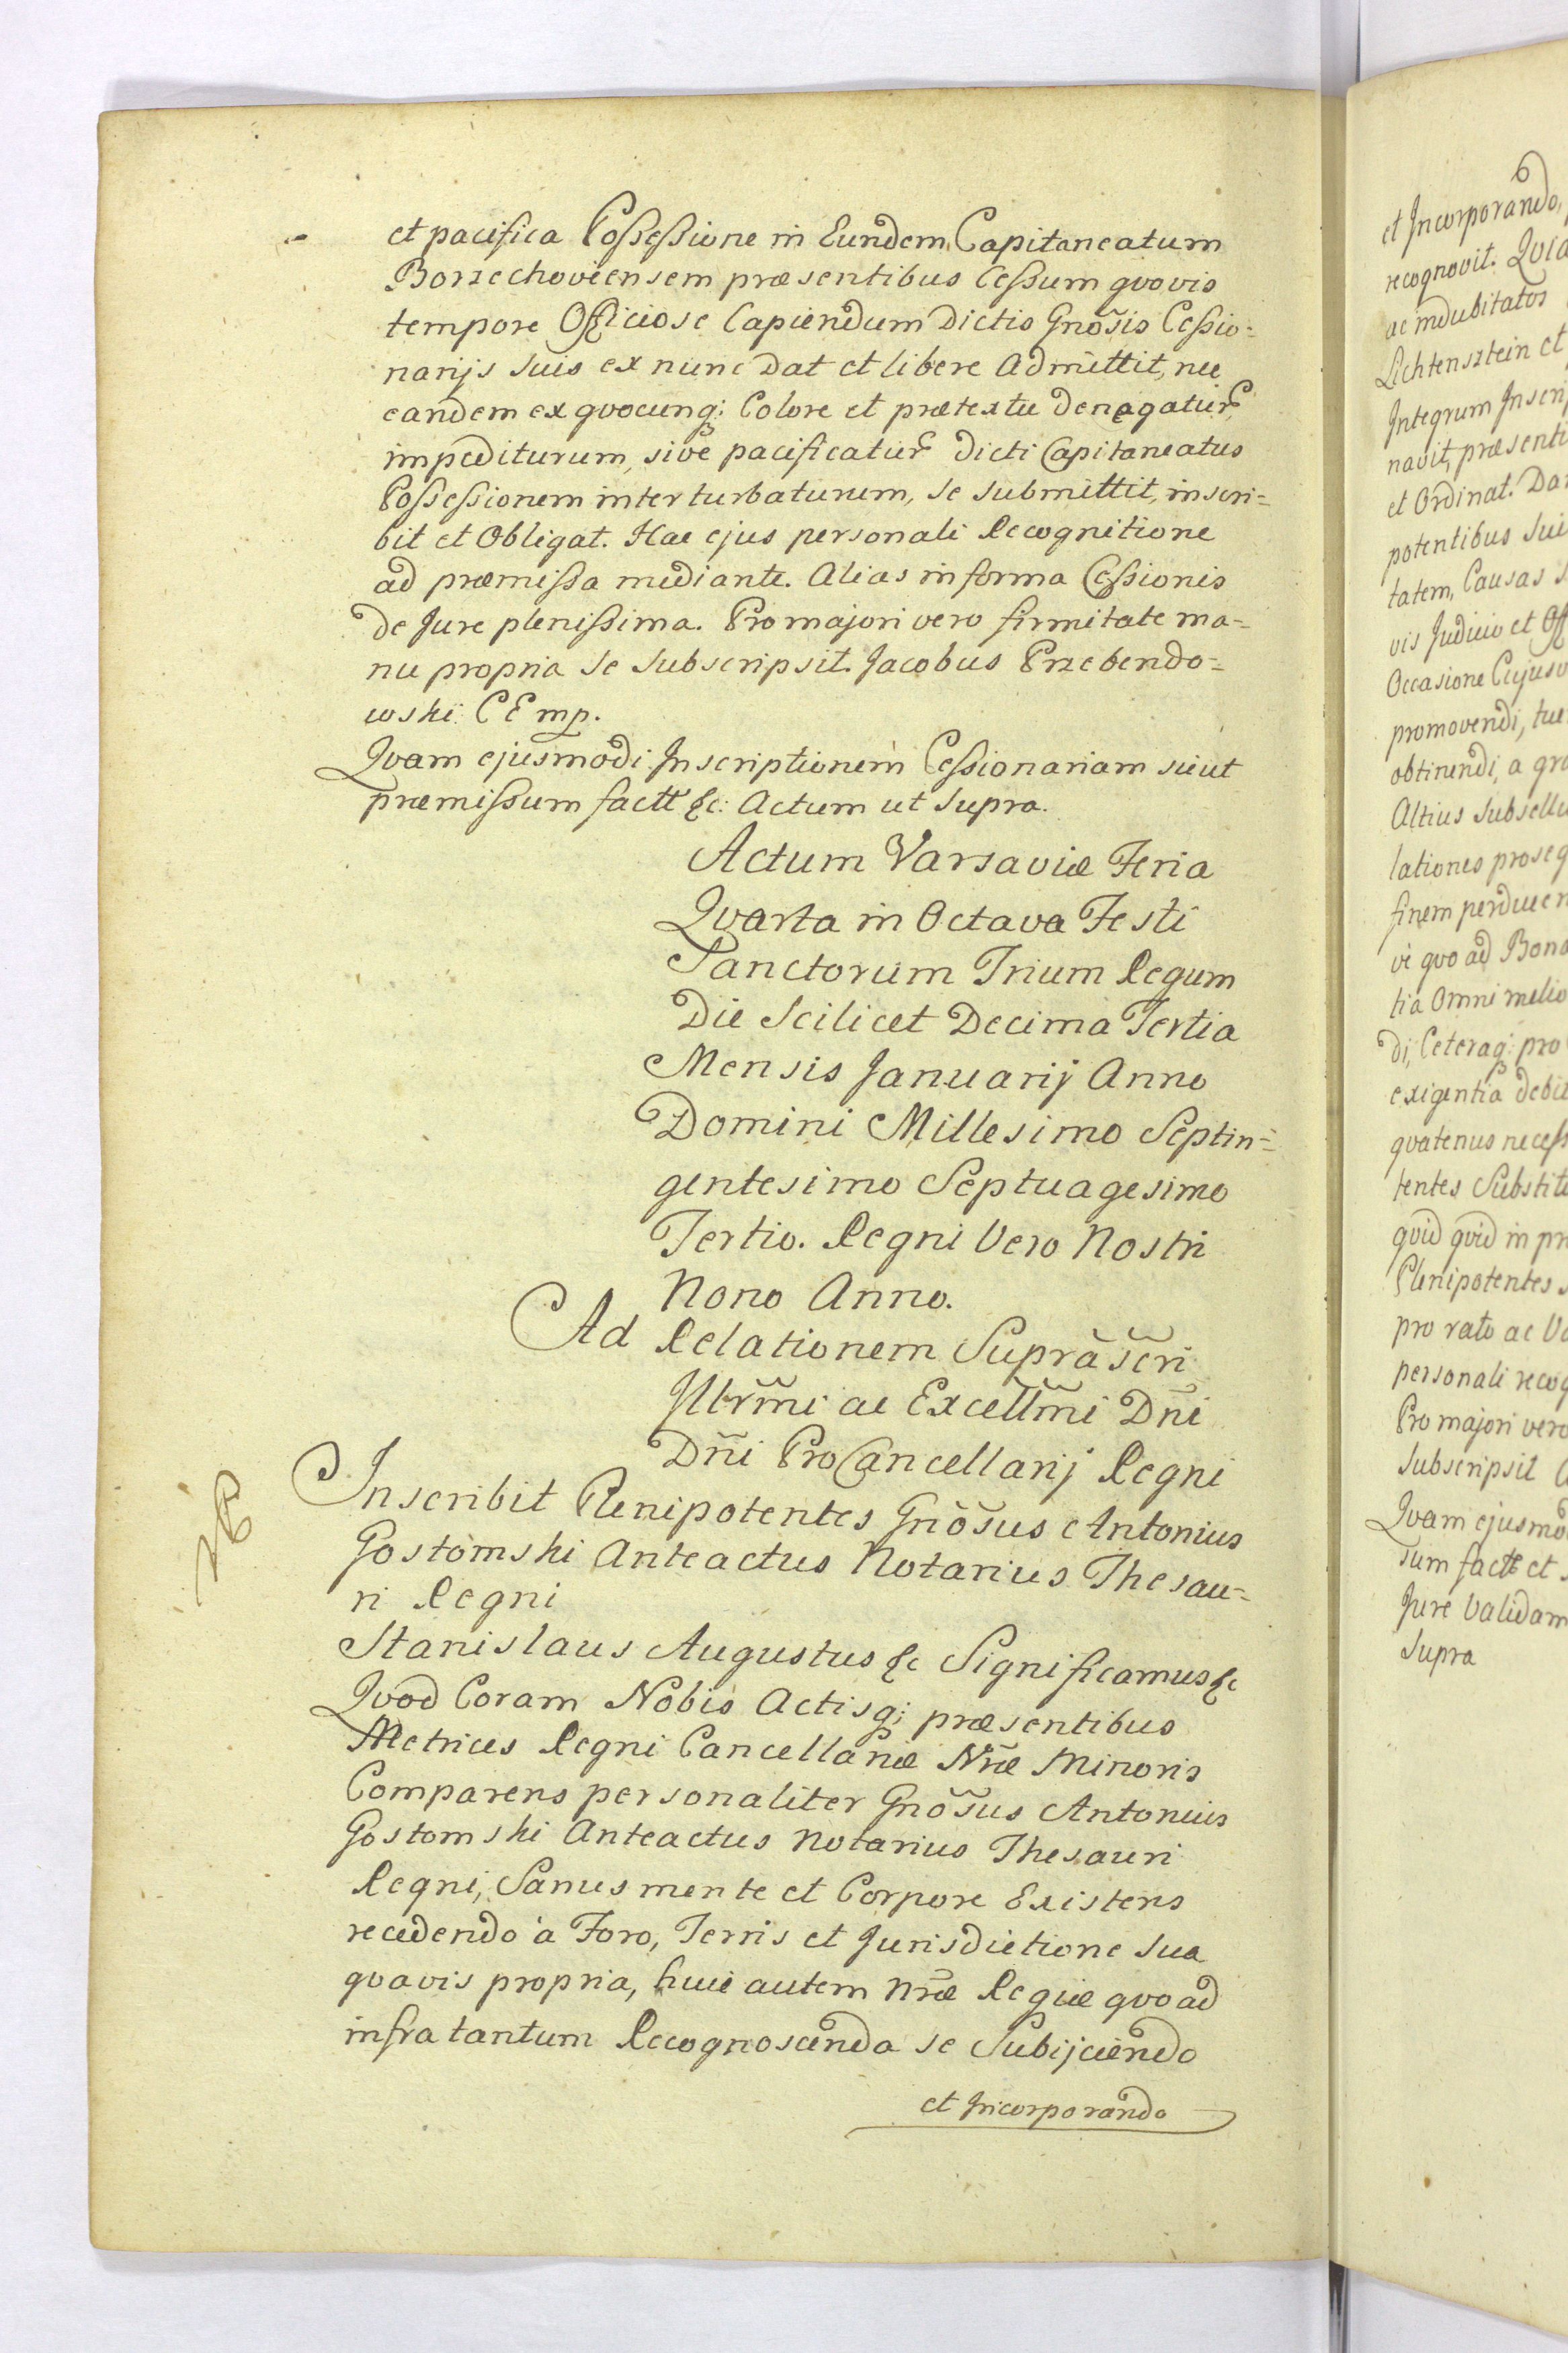 et pacifica Possessione in Eundem Capitaneatum
Borzechoviensem præsentibus Cessum qvovis
tempore Officiose Capiendum Dictis Gnõsis Cessio=
narijs suis ex nunc Dat et libere Admittit, nec
eandem ex qvocunq; Colore et prætextu denegatur
impediturum, sive pacificatur dicti Capitaneatus
Possessionem interturbaturum, se submittit, inscri=
bit et Obligat. Hac ejus personali Recognitione
ad præmissa mediante. Alias in forma Cessionis
de Jure plenissima. Pro majori vero firmitate ma=
nu propria se subscripsit. Jacobus Przebendo=
wski CE mp.
Qvam ejusmodi Inscriptionem Cessionariam sicut
præmissum factt &c: Actum ut supra.
Actum Varsaviæ Feria
Qvarta in Octava Festi
Sanctorum Trium Regum
Die Scilicet Decima Tertia
Mensis Januarij Anno
Domini Millesimo Septin=
gentesimo Septuagesimo
Tertio. Regni Vero Nostri
Nono Anno.
Ad Relationem Suprãscri
Illrm̃i ac Excellm̃i Dñi
Dñi ProCancellarij Regni
Inscribit Plenipotentes Gnõsus Antonius
Gostomski Anteactus Notarius Thesau=
ri Regni
Stanislaus Augustus &c Significamus &c
Qvod Coram Nobis Actisq; præsentibus
Metrices Regni Cancellariæ Nr̃æ Minoris
Comparens personaliter Gnõsus Antonius
Gostomski Anteactus Notarius Thesauri
Regni, Sanus mente et Corpore Existens
recedendo à Foro, Terris et Jurisdictione sua
qvavis propria, huic autem nr̃æ Regiæ qvo ad
infra tantum Recognoscenda se Subijciendo
et Incorporando
et Incorporando,
recognovit. Qvia
ac indubitatos
Lichtensztein et
Integrum
navit, præsenti
et Ordinat. Da
potentibus sui
tatem, Causas
vis Judicio et Off
Occasione Cujusv
promovendi, tue
obtinendi, a gra
Altius subselli
lationes proseq
finem perducen
vi qvo ad Bona
tia Omni melio
di, Ceteraq; pro
exigentia debit
qvatenus necess
tentes Substit
qvid qvid in pr
Plenipotentes
pro rato ac
personali recog
Pro majori vero
subscripsit
Qvam ejusmo
sum factt et
Jure Validam
Supra